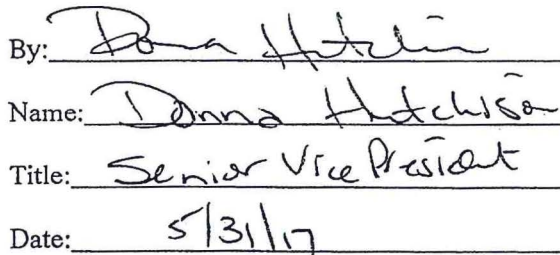 By: Donna Hutchison
Name: Donna Hutchison
Title: Senior Vice President
Date: 5/31/17